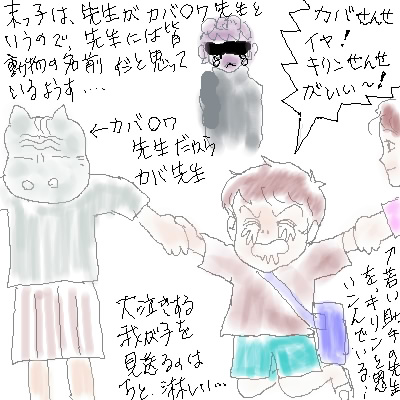 末っ子は、先生がカバ○ワ先生と
いうので、先生には皆
動物の名前仏と思って
いるようす…
カバせんせ
イヤ!
キリンせんせ
がいい〜!
←カバ○ワ
先生だから
カバ先生
大泣きする
我が子を
見送るのは
ちと、淋しい…
若い助手の先生
を、キリンと思
いこんでいる…